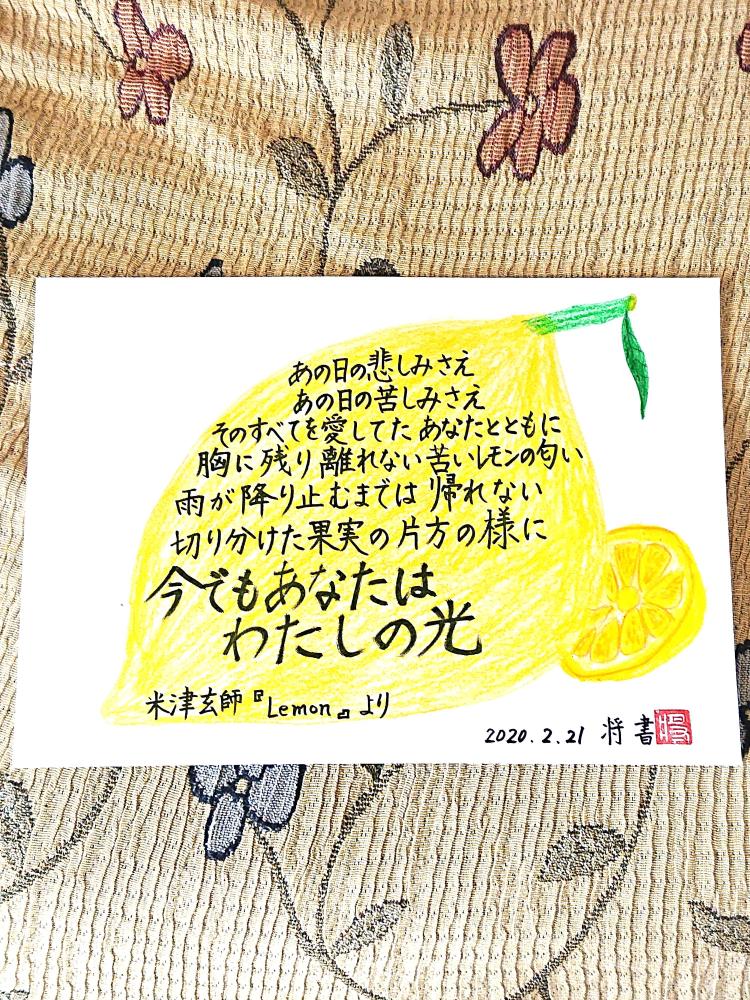 あの日の悲しみさえ
あの日の苦しみさえ
そのすべてを愛してた あなたとともに
胸に残り離れない 苦いレモンの匂い
雨が降り止むまでは 帰れない
切り分けた果実の片方の様に
今でもあなたは
わたしの光
米津玄師『Lemon』より
2020.2.21 将書
将